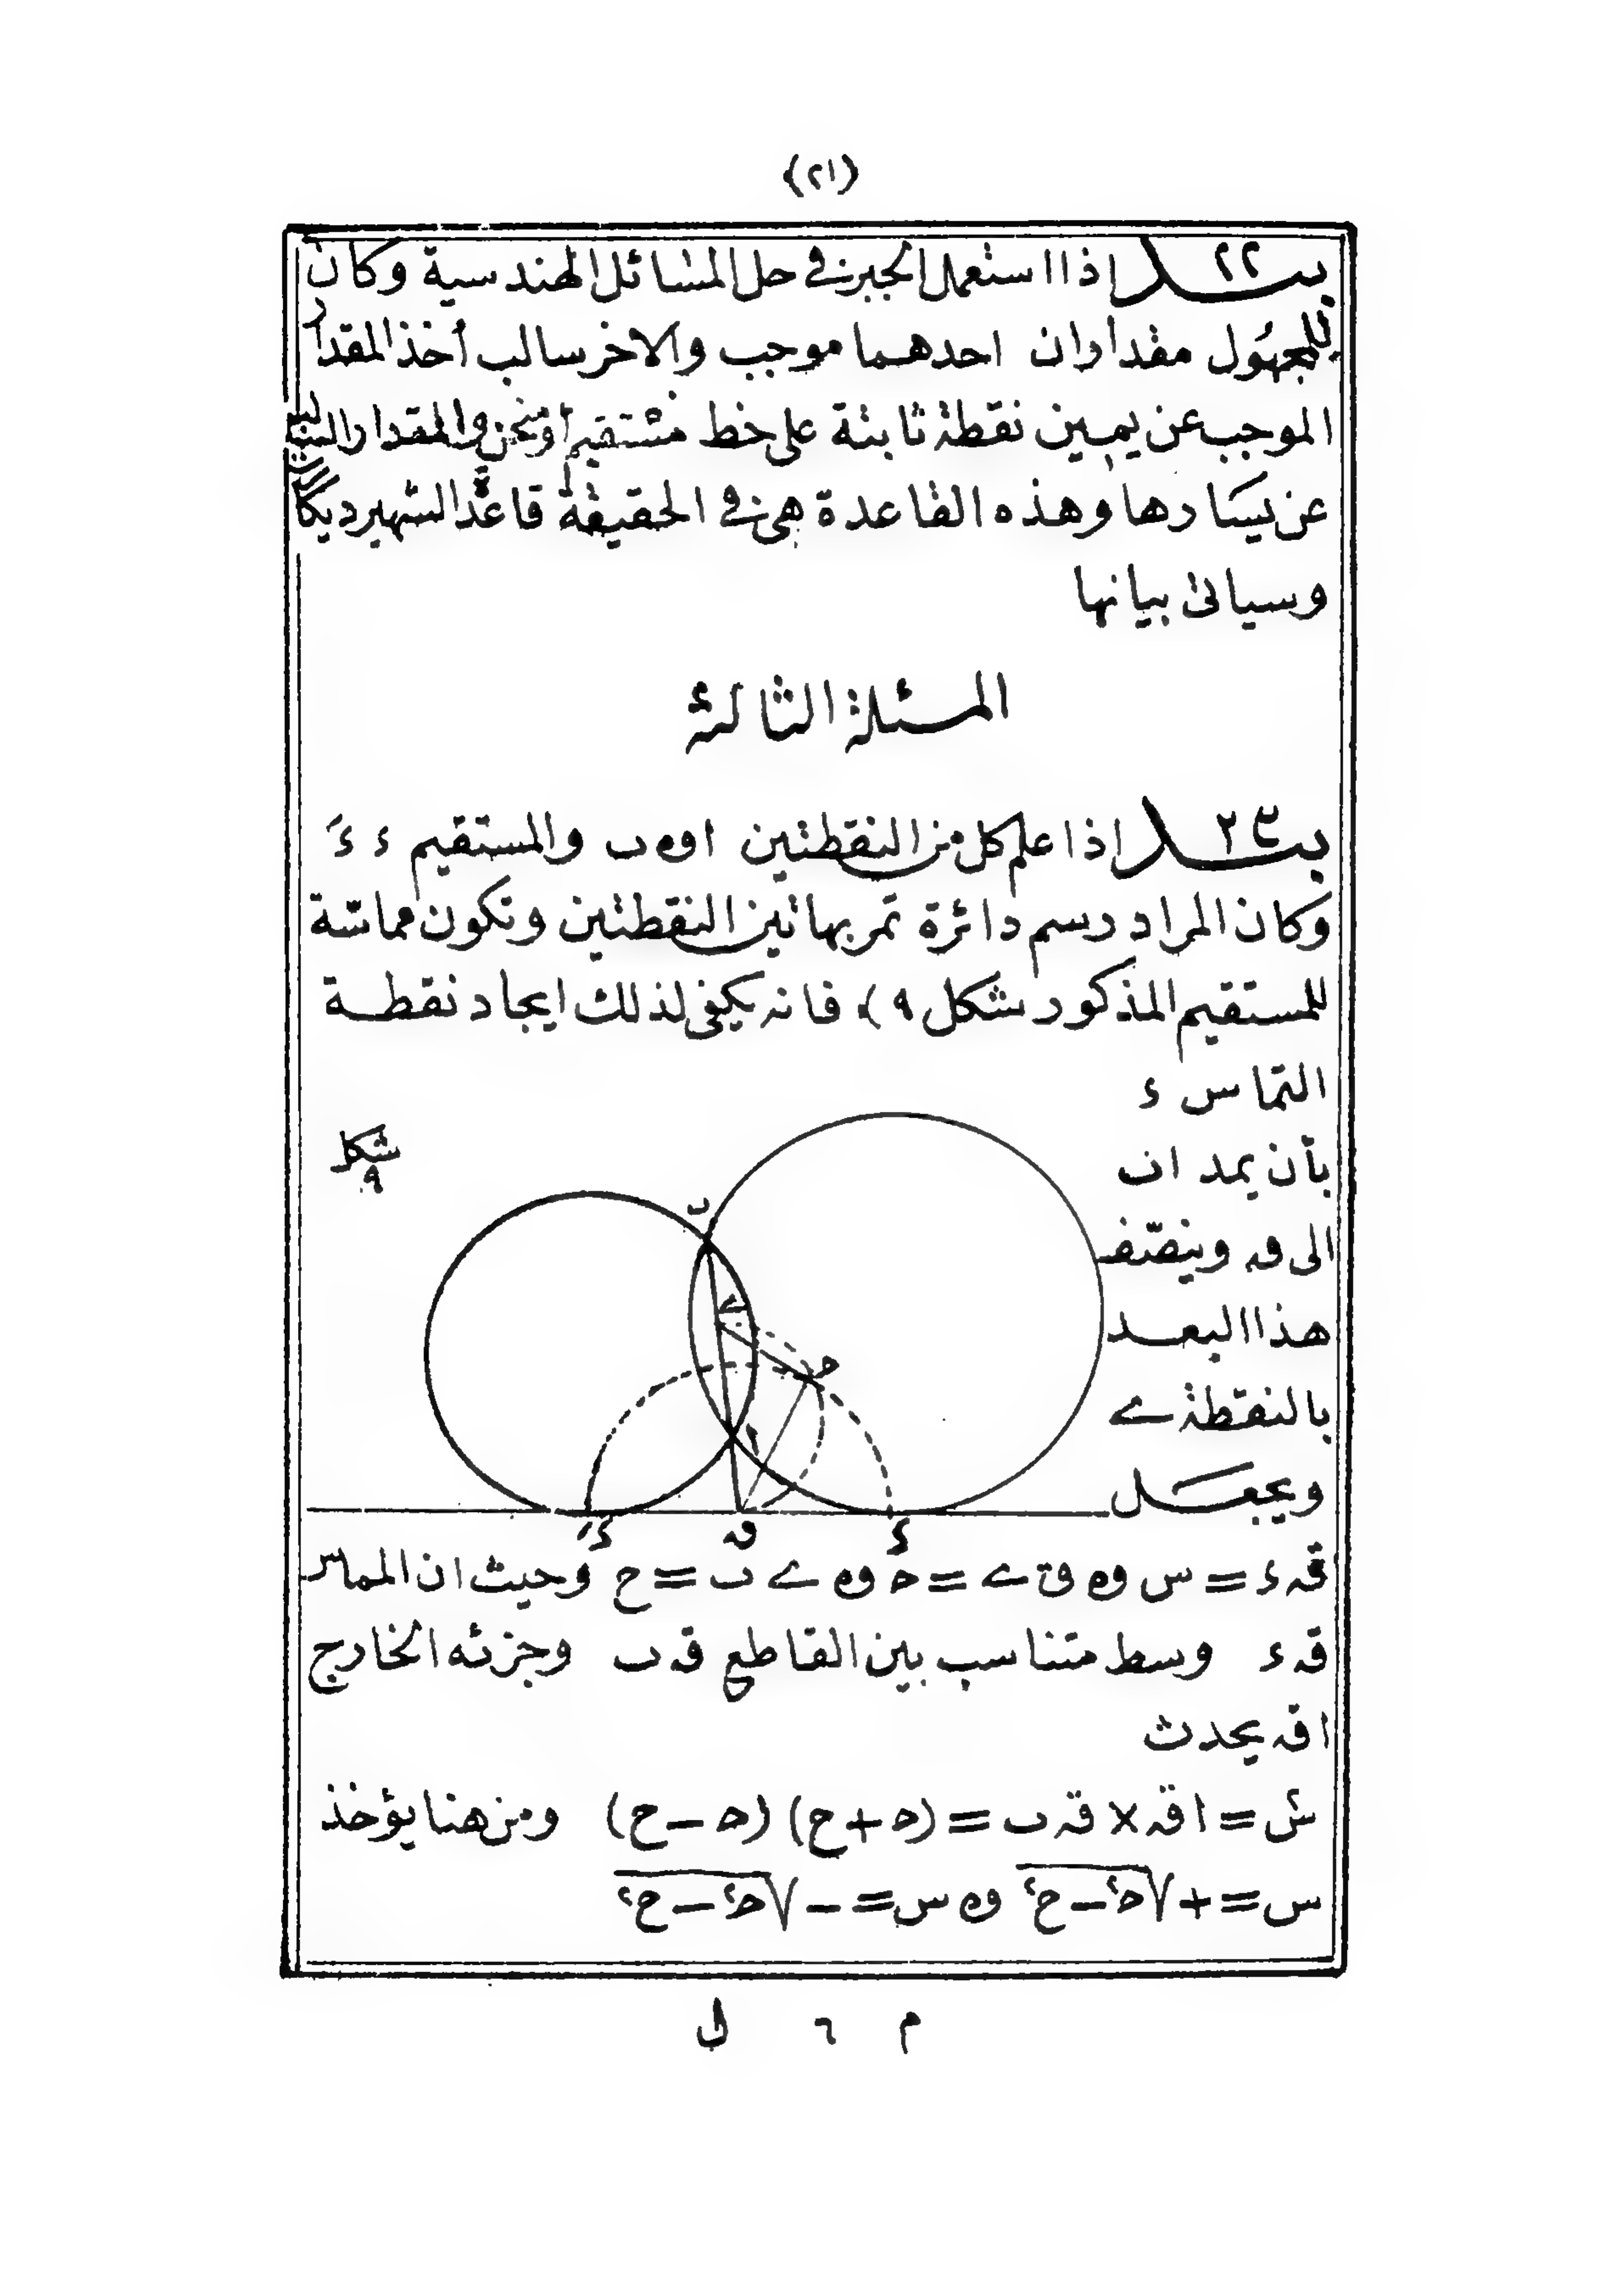 (٢١)
بند ٢٢ اذا استعمل الجبر في حل المسائل الهندسية وكان
للمجهول مقداران احدهما موجب والاخر سالب أخذ المقدار
الموجب عن يمين نقطة ثابتة على خط مستقيم أو منحن والمقدار السالب
عن يسارها وهذه القاعدة هي في الحقيقة قاعدة الشهير ديكارت
وسياتى بيانها
المسئلة الثالثة
بند ٢٣ اذا علم كل من النقطتين ا و ں والمستقيم ء ءَ
وكان المراد رسم دائرة تمر بهاتين النقطتين وتكون مماسّة
للمستقيم المذكور شكل ٩) فانه يكفى لذلك ايجاد نقطــة
التماس ء
بأن يمد ا ں
الى ق وينصّف
هذا البعــد
بالنقطة ے
ويجعــل
شكل
٩
ں
ے
ح
ا
ءَ
ق
ء
ق ء = س و ق ے = ح و ے ں = ع وحيث ان المماس
ق ء وسط متناسب بين القاطع ق ں وجزئه الخارج
ا ق يحدث
س٢ = ا ق × ق ں = (ح + ع) (ح − ع) ومن هنا يؤخذ
س = + √ح٢ − ع٢ و س = − √ح٢ − ع٢
م ٦ ل